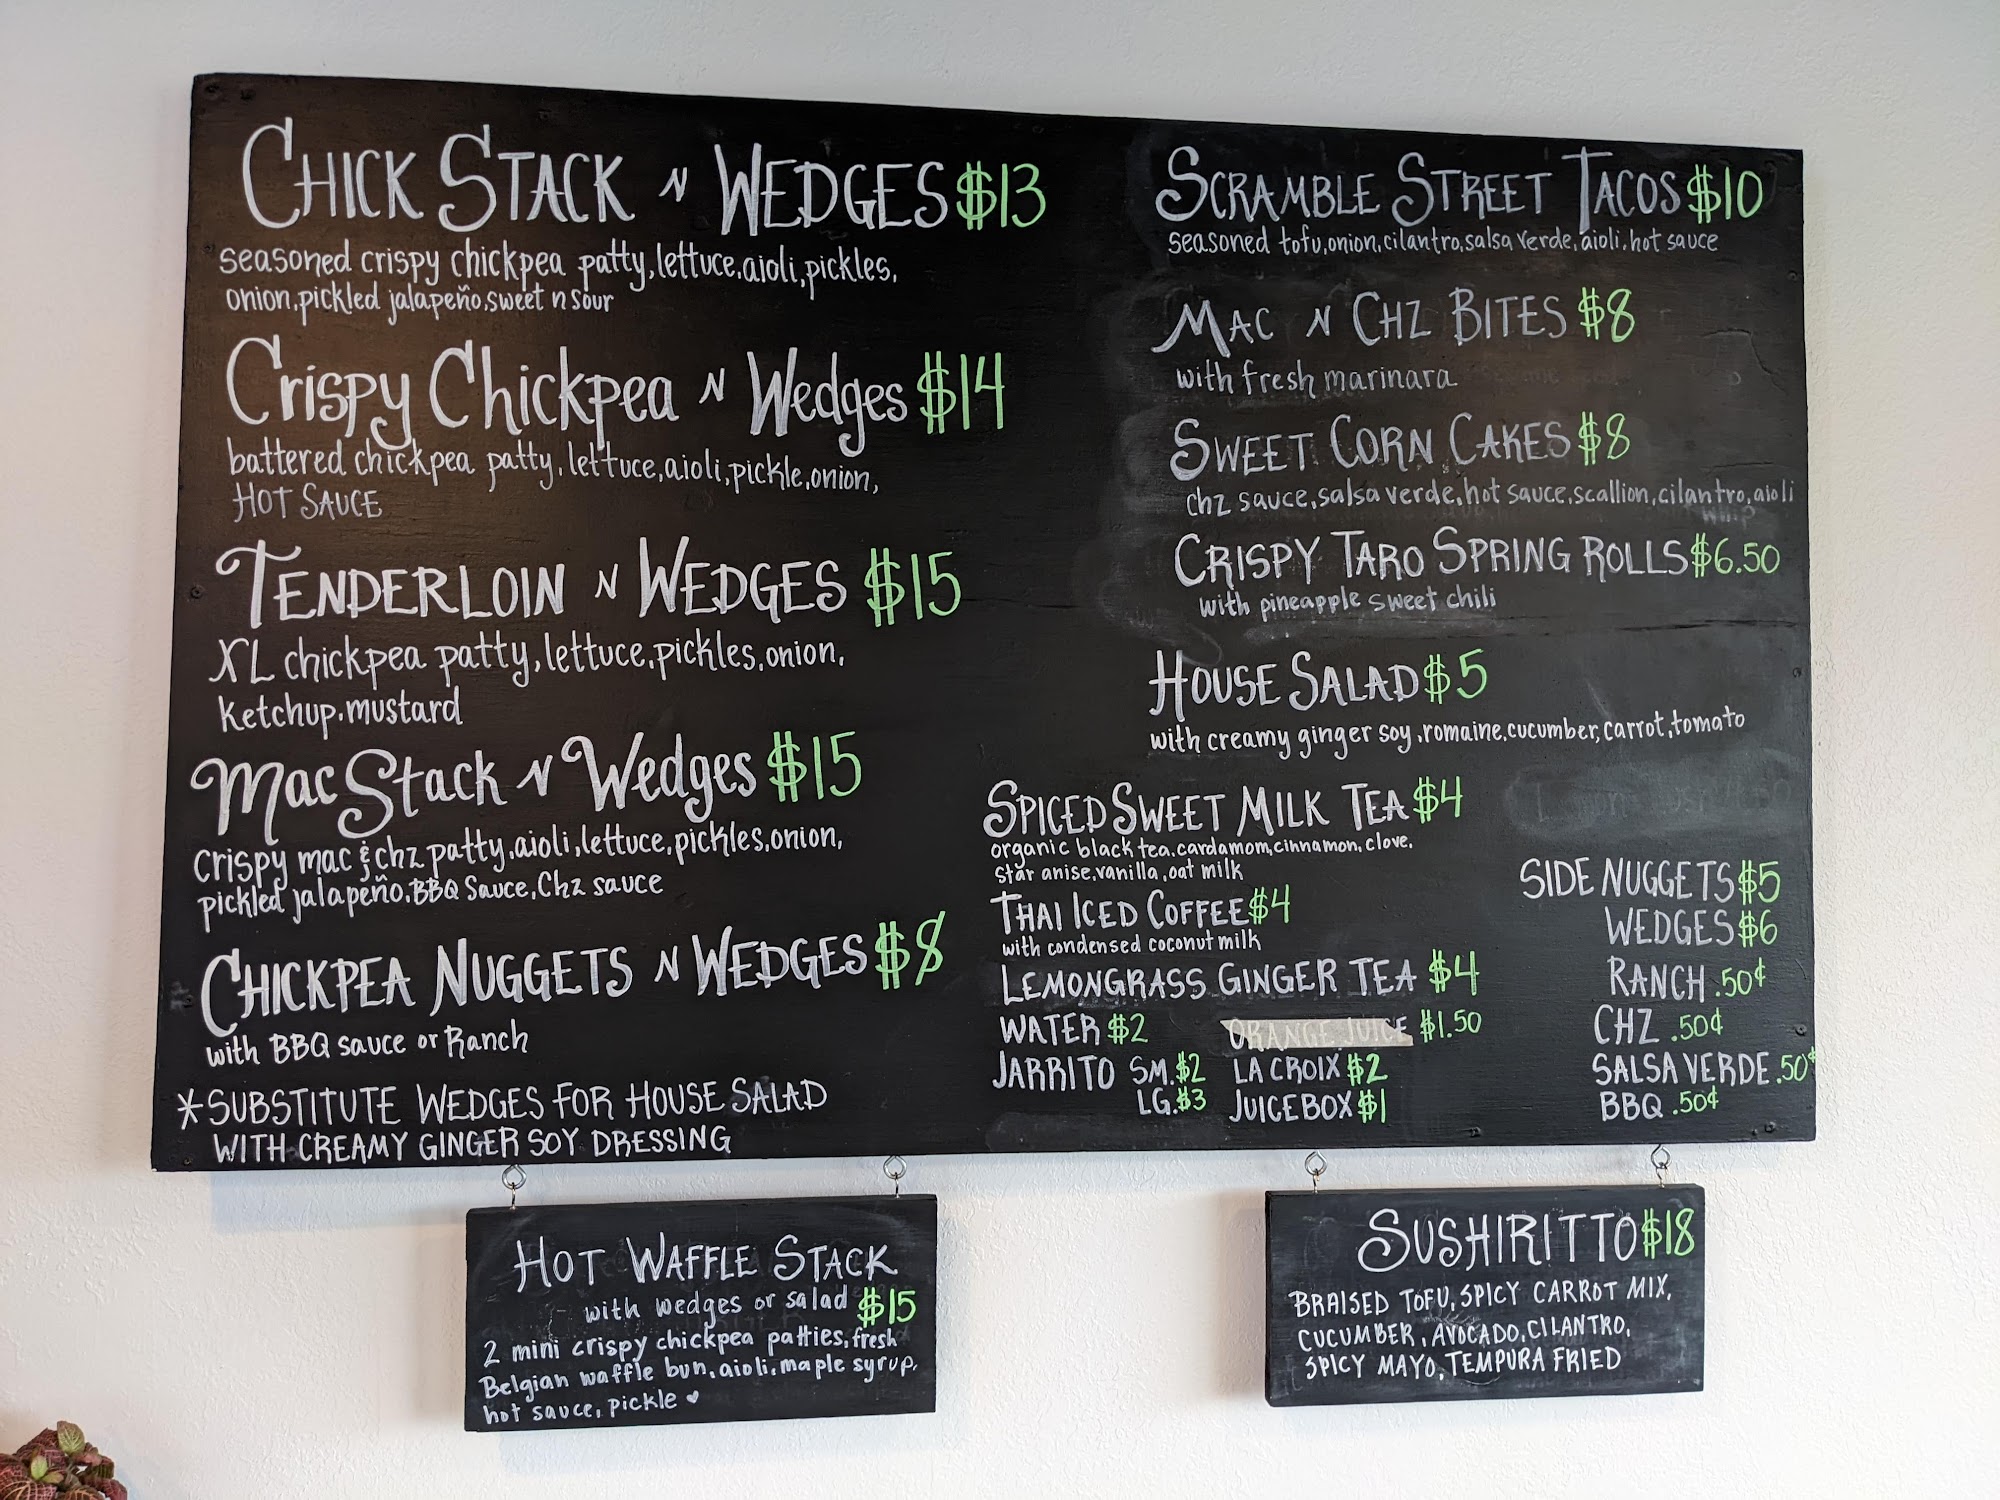 CHICK STACK N WEDGES $13
seasoned crispy chickpea patty, lettuce, aioli, pickles,
onion, pickled jalapeño, sweet n sour
Crispy Chickpea N Wedges $14
battered chickpea patty, lettuce, aioli, pickle, onion,
HOT SAUCE
TENDERLOIN N WEDGES $15
XL chickpea patty, lettuce, pickles, onion,
ketchup, mustard
Mac Stack N Wedges $15
crispy mac & chz patty, aioli, lettuce, pickles, onion,
pickled jalapeño, BBQ Sauce, Chz sauce
CHICKPEA NUGGETS N WEDGES $8
with BBQ sauce or Ranch
*SUBSTITUTE WEDGES FOR HOUSE SALAD
WITH CREAMY GINGER SOY DRESSING
SCRAMBLE STREET TACOS $10
seasoned tofu, onion, cilantro, salsa verde, aioli, hot sauce
MAC N CHZ BITES $8
with fresh marinara
SWEET CORN CAKES $8
chz sauce, salsa verde, hot sauce, scallion, cilantro, aioli
CRISPY TARO SPRING ROLLS $6.50
with pineapple sweet chili
HOUSE SALAD $5
with creamy ginger soy, romaine, cucumber, carrot, tomato
SPICED SWEET MILK TEA $4
organic black tea, cardamom, cinnamon, clove,
star anise, vanilla, oat milk
THAI ICED COFFEE $4
with condensed coconut milk
LEMONGRASS GINGER TEA $4
WATER $2
ORANGE JUICE $1.50
JARRITO SM. $2
LG. $3
LA CROIX $2
JUICEBOX $1
SIDE NUGGETS $5
WEDGES $6
RANCH .50¢
CHZ .50¢
SALSA VERDE .50¢
BBQ .50¢
HOT WAFFLE STACK
with wedges or salad $15
2 mini crispy chickpea patties, fresh
Belgian waffle bun, aioli, maple syrup,
hot sauce, pickle ♥
SUSHIRITTO $18
BRAISED TOFU, SPICY CARROT MIX,
CUCUMBER, AVOCADO, CILANTRO,
SPICY MAYO, TEMPURA FRIED